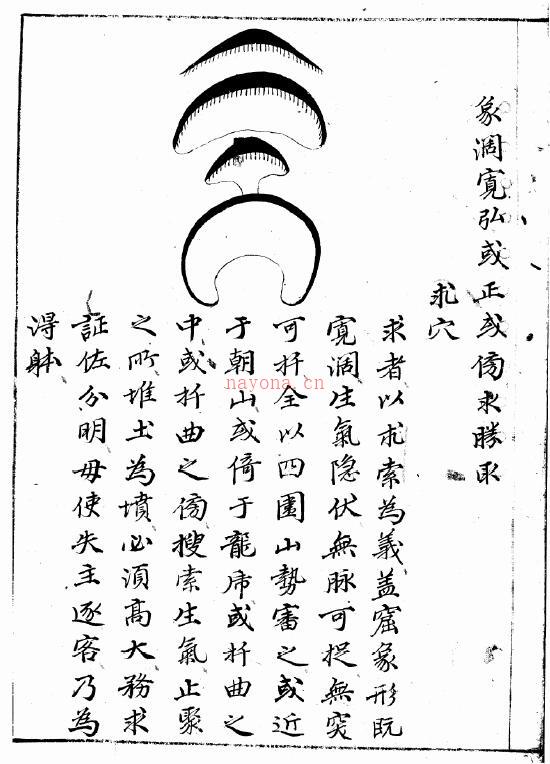 象濶寬弘或正或傍求勝取
求穴
求者以求索為義盖窟象形既
寬濶生氣隐伏無脉可捉無突
可扦全以四圍山勢審之或近
于朝山或倚于龍虎或扦曲之
中或扦曲之傍搜索生氣止聚
之所堆土為墳必須高大務求
証佐分明毋使失主逐客乃為
淂躰
nayona.cn